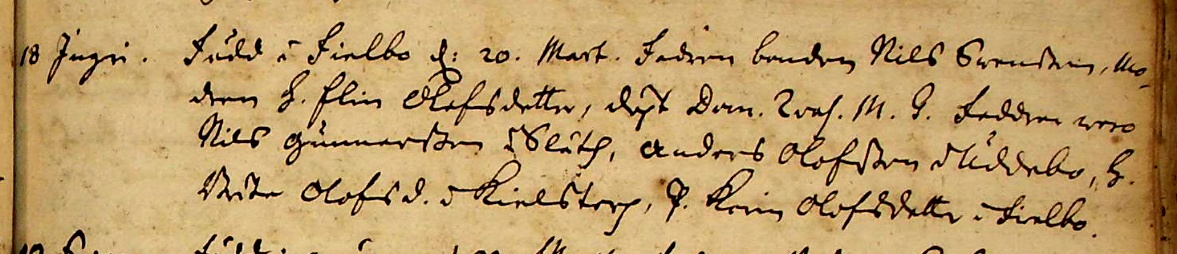 18 Ingri. Född i Fielbo d: 20. Mart. Fadren bonden Nils Svensson, Mo-
dren H. Elin Olofsdotter, döpt Dom. M. G. Faddrar woro
Nils Gunnersson i Slät, Anders Olofsson i Uddebo, H.
Brita Olofsd. i Kielstorp, P. Karin Olofsdotter i Fielbo.